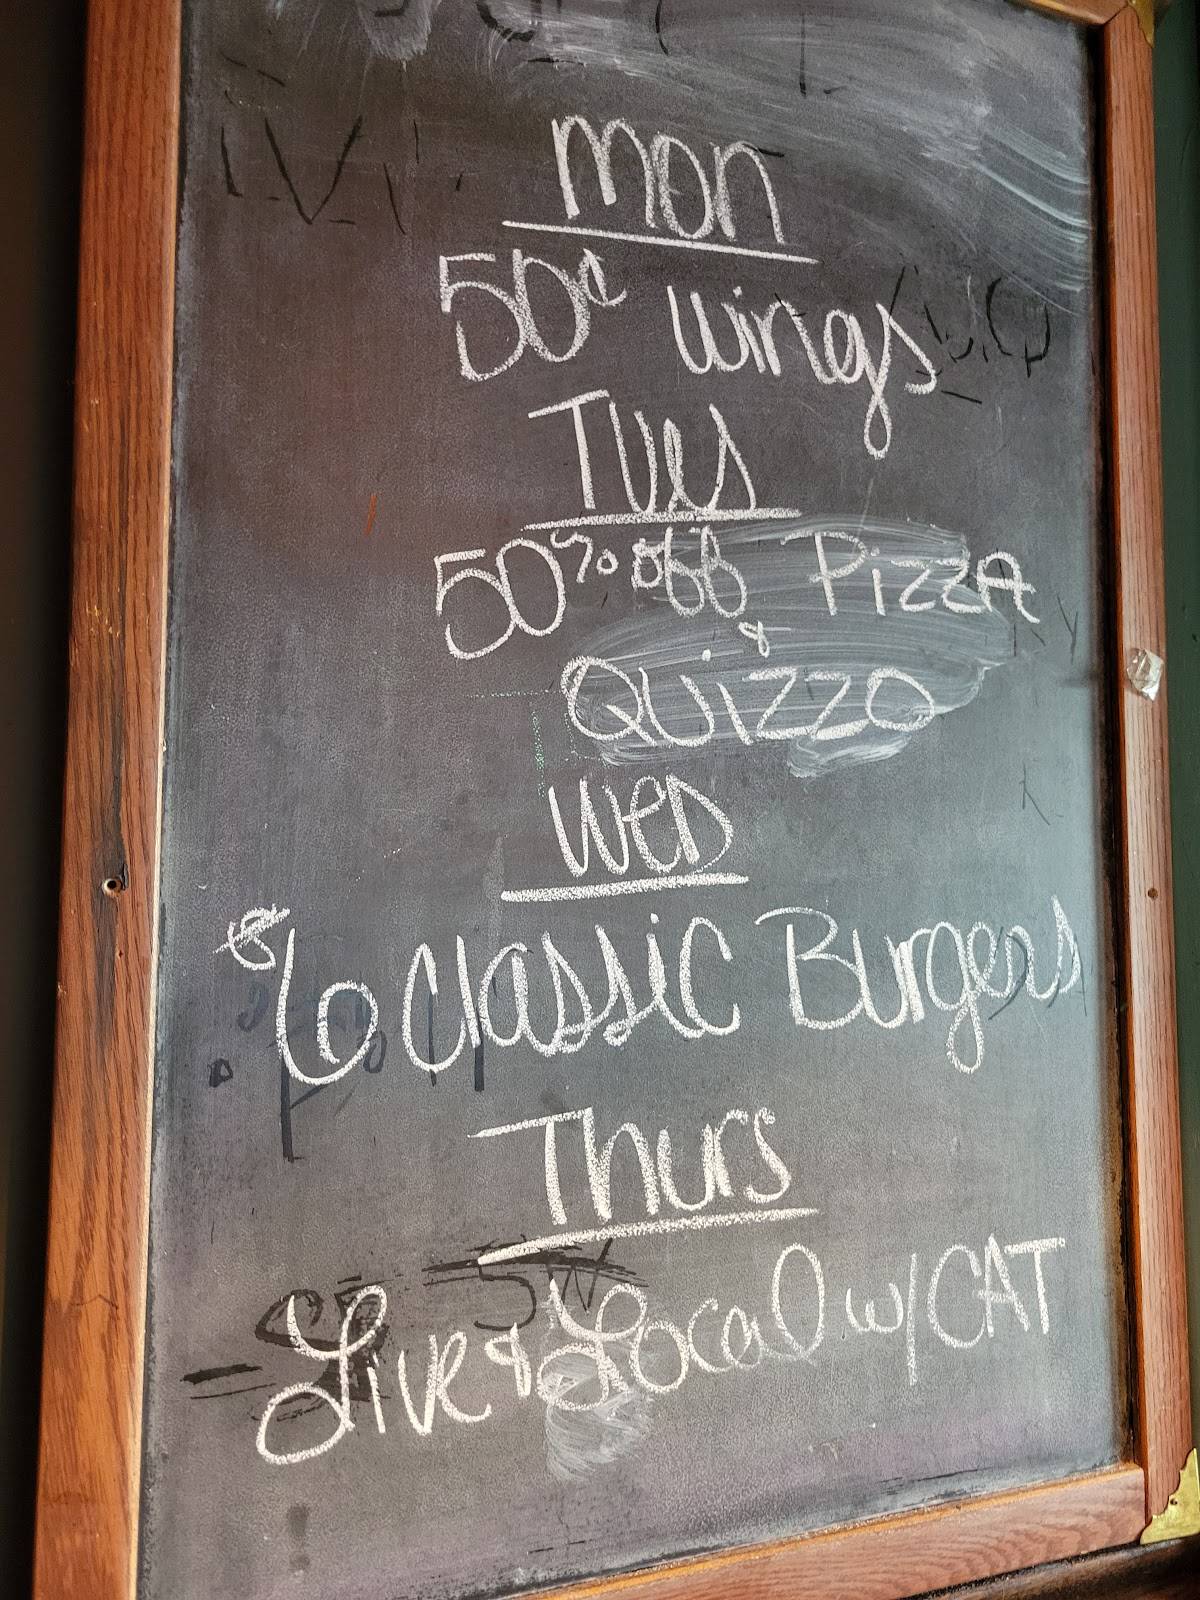 Mon
50¢ wings
Tues
50% off Pizza
&
Quizzo
Wed
$6 Classic Burgers
Thurs
Live & Local w/ CAT